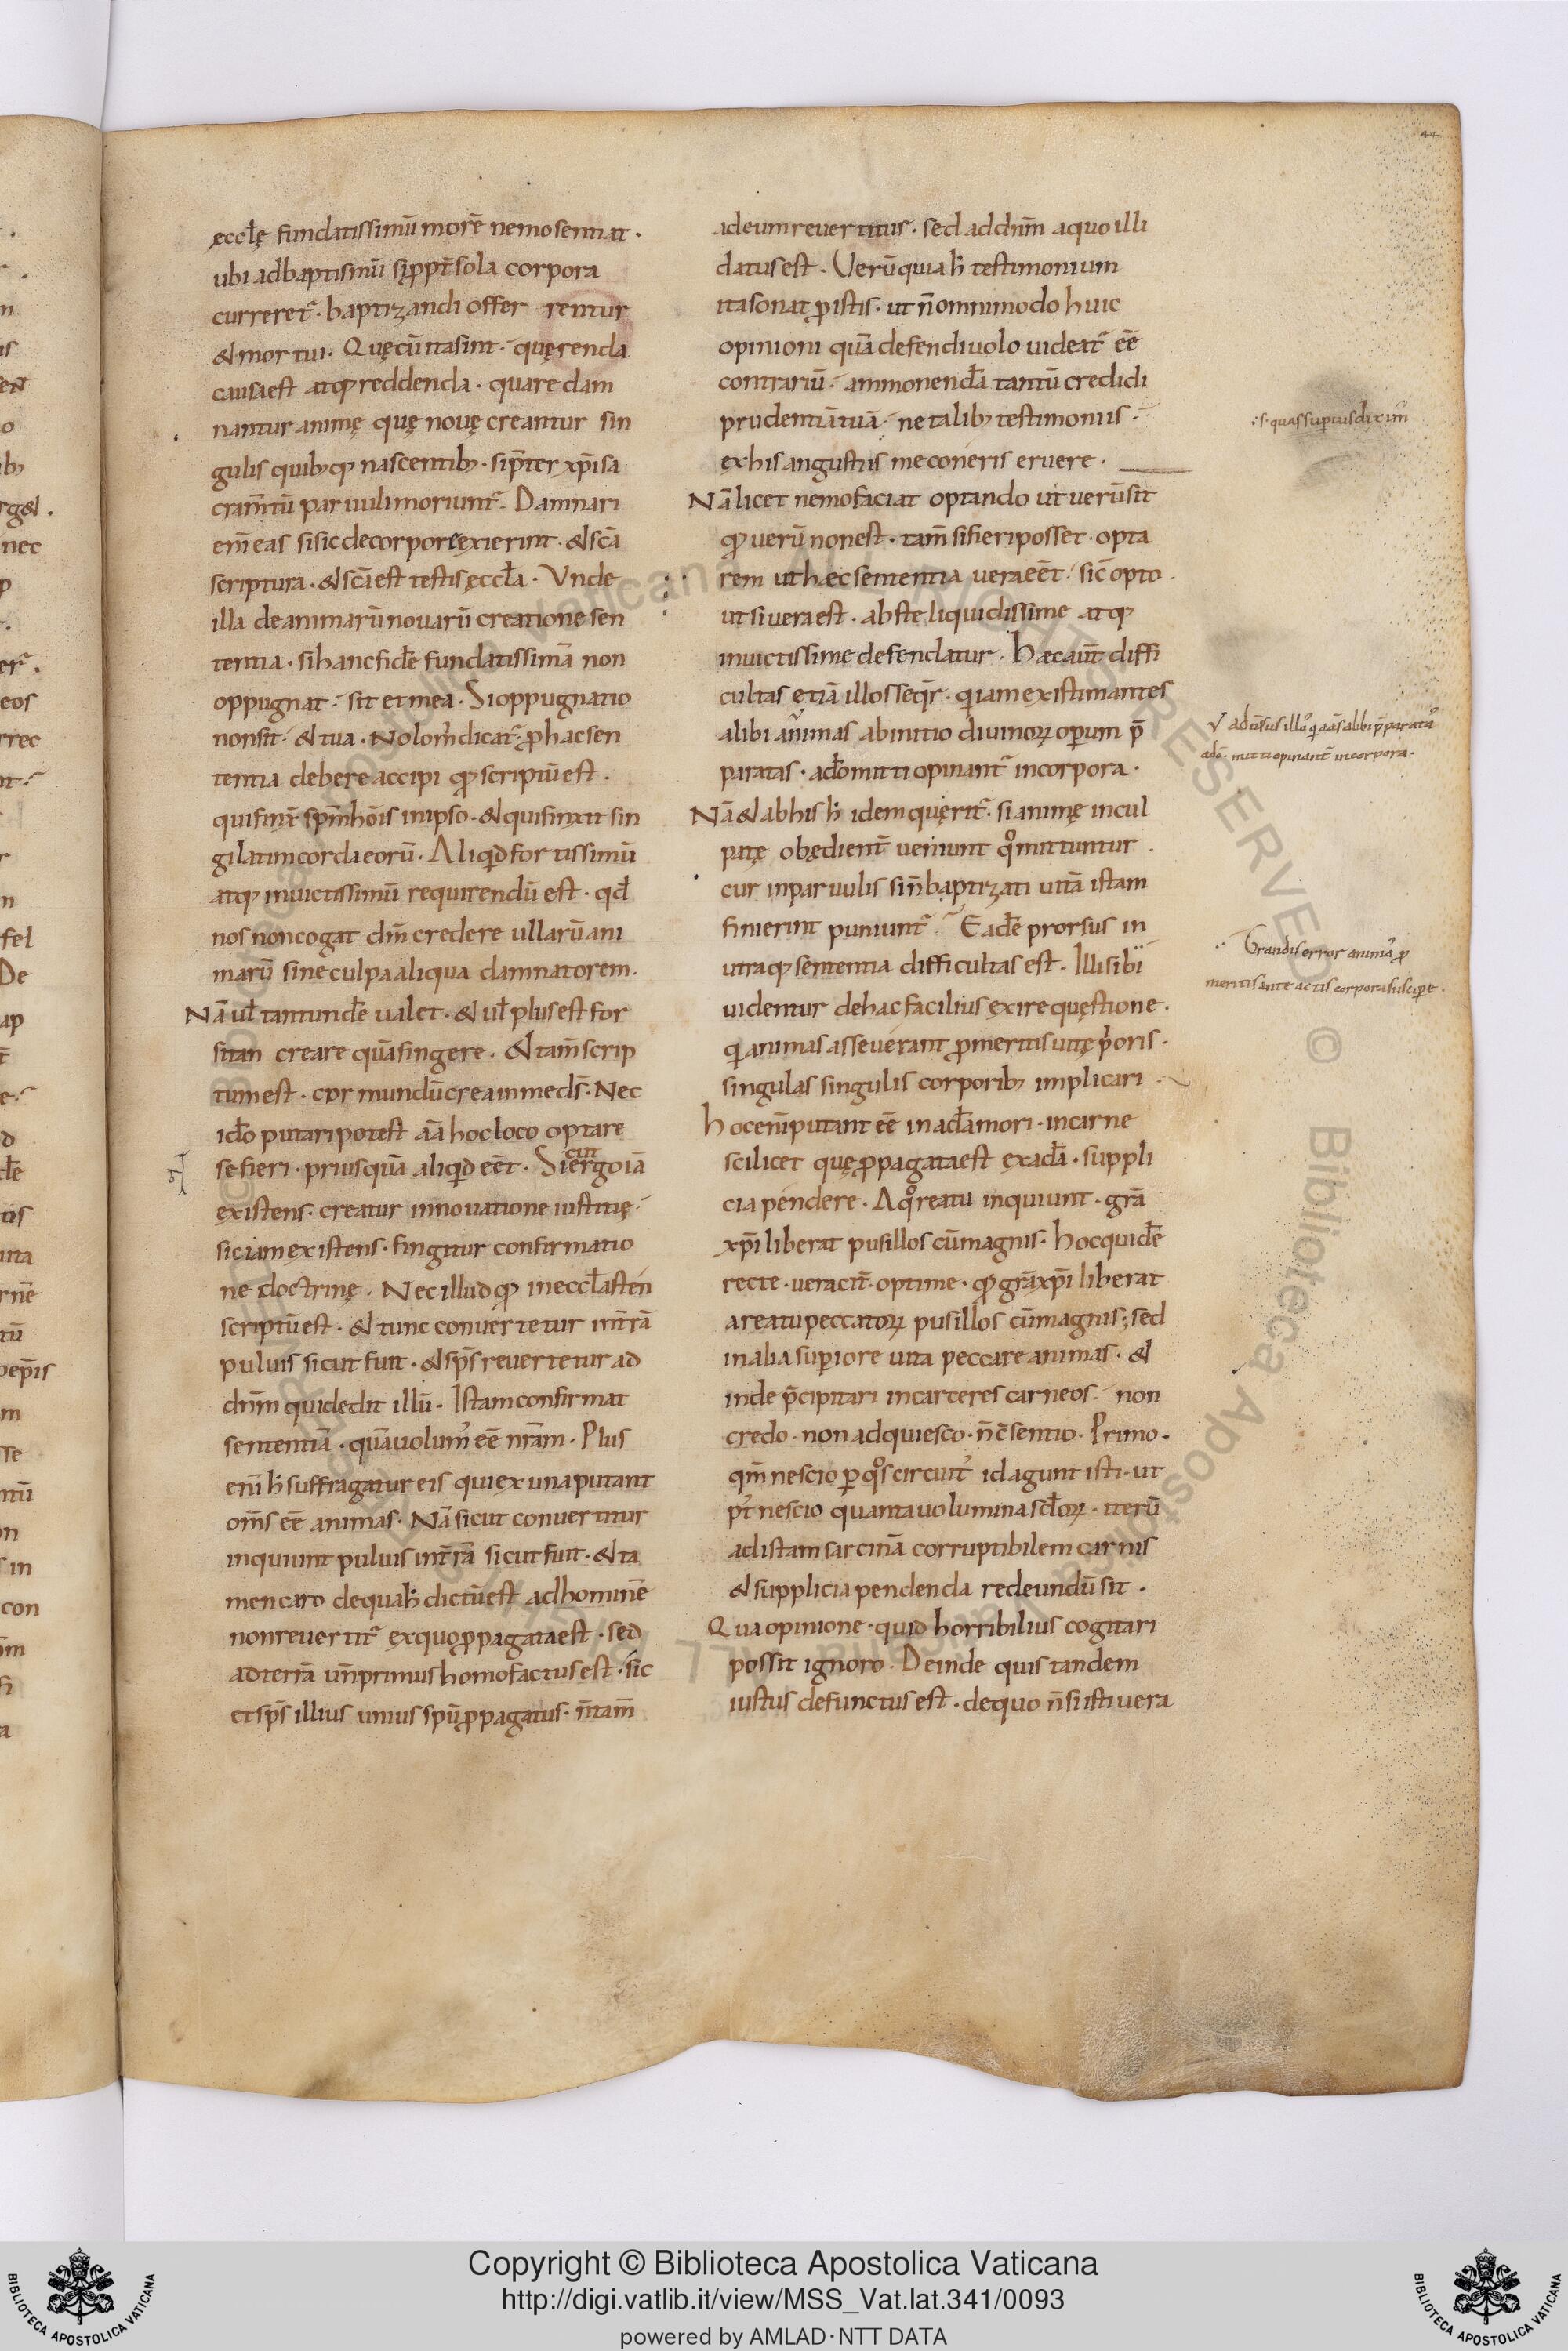 44
ęccłę fundatissimū morē nemo sentiat.
ubi ad baptismū si ppt̄ sola corpora
curreret᷑. baptizandi offer rentur
& mortui. Quę cū ita sint. quęrenda
causa est atq; reddenda. quare dam
nantur animę quę nouę creantur sin
gulis quibusq; nascentib;. si p̄ter xp̄i sa
cram̄tū paruuli moriunt᷑. Damnari
eni̅ eas si sic de corpore exierint. & sc̄a
scriptura. & sc̄a est testis ęccła. Vnde
illa de animarū nouarū creatione sen
tentia. si hanc fidē fundatissimā non
oppugnat. sit et mea. Si oppugnat io
non sit. & tua. Nolo m̄ dicat᷑. ꝓ hac sen
tentia debere accipi qđ scriptū est.
qui finxit spm̄ hōis in ipso. & qui finxit sin
gilatim corda eorū. Aliqđ fortissimū
atq; inuictissimū requirendū est. qđ
nos non cogat dm̄ credere ullarū ani
marū sine culpa aliqua damnatorem.
Nā uł tantundē ualet. & uł plus est for
sitan creare quā fingere. & tam̄ scrip
tum est. cor mundū crea in me ds̄. Nec
idō putari potest aīa hoc loco optare
se fieri. priusquā aliqđ eēt. Si ergo iā
existens. creatur innouatione iustitię.
sic iam existens. fingitur confirmatio
ne doctrinę. Nec illud qđ in eccłasten
scriptū est. & tunc conuertetur in t̄rā
puluis sicut fuit. & sp̄s reuertetur ad
dn̄m qui dedit illū. Istam confirmat
sententiā. quā uolum᷒ eē nr̄am. Plus
eni̅ h̄ suffragatur eis qui ex una putant
om̄s eē animas. Nā sicut conuertitur
inquiunt puluis in t̄rā sicut fuit. & ta
men caro de qua h̄ dictū est ad hominē
non reuertit᷑ ex quo ꝓpagata est. sed
ad terrā un̄ primus homo factus est. sic
et sp̄s illius unius spū ꝓpagatus. n̄ tam̄
ad eum reuertitur. sed ad dn̄m a quo illi
datus est. Verū quia h̄ testimonium
ita sonat ꝓ istis. ut n̄ omnimodo huic
opinioni quā defendi uolo uideat᷑ eē
contrariū. ammonendā tantū credidi
prudentiā tuā. ne talib; testimoniis.
ex his angustiis me coneris eruere.
Nā licet nemo faciat optando ut uerū sit
qđ uerū non est. tam̄ si fieri posset. opta
rem ut hæc sententia uera eēt. sic̄ opto
ut si uera est. abs te liquidissime atq;
inuictissime defendatur. Hæc aut̄ diffi
cultas etiā illos seqr̄. qui iam existimantes
alibi animas ab initio diuinoꝝ operum p̄
paratas. a dō mitti opinant᷑ in corpora.
Nā & ab his h̄ idem quęrit᷑. si animę incul
patę obędient̄ ueniunt quo mittuntur.
cur in paruulis si n̄ baptizati uitā istam
finierint puniunt᷑. Eadē prorsus in
utraq; sententia difficultas est. Illi sibi
uidentur de hac facilius exire quęstione.
qui animas asseuerant ꝓ meritis uitę prioris.
singulas singulis corporib; implicari.
Hoc eni̅ putant eē in adā mori. in carne
scilicet quę ꝓpagata est ex adā. suppli
cia pendere. A quo reatu inquiunt. gr̄a
xp̄i liberat pusillos cū magnis. hoc quidē
recte. ueracit̄. optime. qđ gr̄a xp̄i liberat
a reatu peccatoꝝ pusillos cū magnis; sed
in alia superiore uita peccare animas. &
inde p̄cipitari in carceres carneos. non
credo. non adquiesco. n̄ c̄sentio. Primo.
qm̄ nescio per quos circuit᷒ id agunt isti. ut
p᷒t nescio quanta uolumina scłoꝝ. iterū
ad istam sarcinā corruptibilem carnis
& supplicia pendenda redeundū sit.
Qua opinione. quid horribilius cogitari
possit ignoro. Deinde quis tandem
iustus defunctus est. de quo n̄ si isti uera
s. quas superius dixim᷒
adu̅sus illos qui aīas alibi p̄paratas
a dō. mitti opinant᷑ in corpora.
Grandis error animā ꝓ
meritis ante actis corpora suscipere.
© Biblioteca Apostolica Vaticana ALL RIGHTS RESERVED
Copyright © Biblioteca Apostolica Vaticana
http://digi.vatlib.it/view/MSS_Vat.lat.341/0093
powered by AMLAD·NTT DATA
BIBLIOTECA APOSTOLICA VATICANA
BIBLIOTECA APOSTOLICA VATICANA